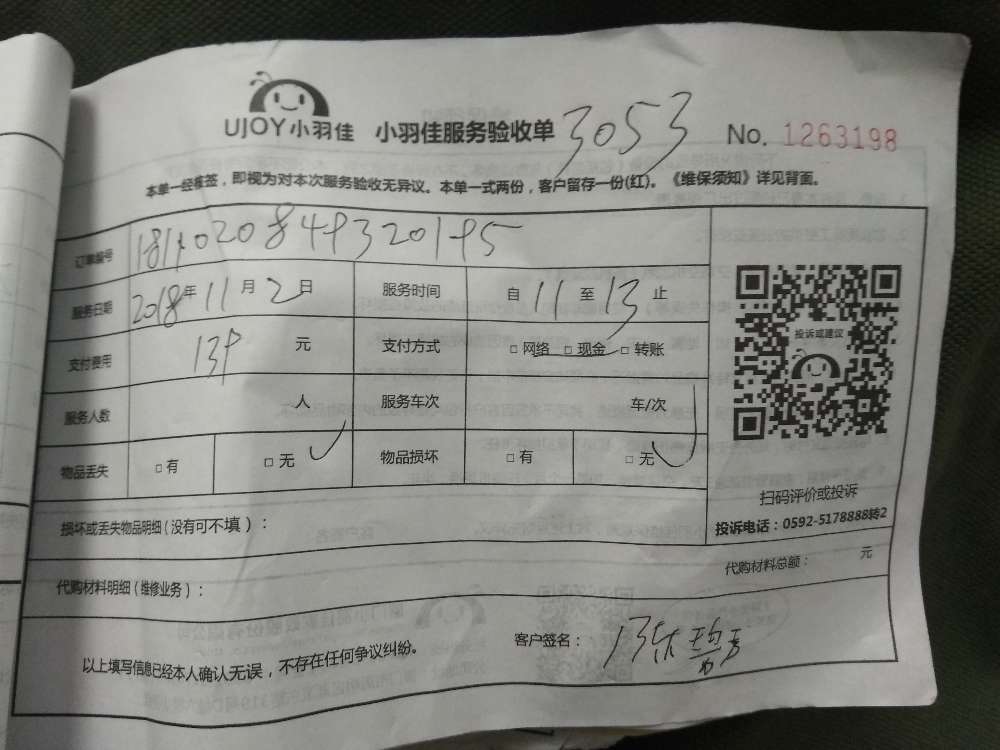 UJOY小羽佳 小羽佳服务验收单 3053 No. 1263198
本单一经签,即视为对本次服务验收无异议。本单一式两份,客户留存一份(红)。《维保须知》详见背面。
订单编号
服务日期 2018年11月2日 服务时间 自11至13止
支付费用 元 支付方式 □网络 □现金 □转账
投诉或建议
服务人数 人 服务车次 车/次
物品丢失 □有 □无 物品损坏 □有 □无
扫码评价或投诉
投诉电话:0592-5178888转2
损坏或丢失物品明细(没有可不填):
代购材料明细(维修业务): 代购材料总额: 元
以上填写信息已经本人确认无误,不存在任何争议纠纷。 客户签名: